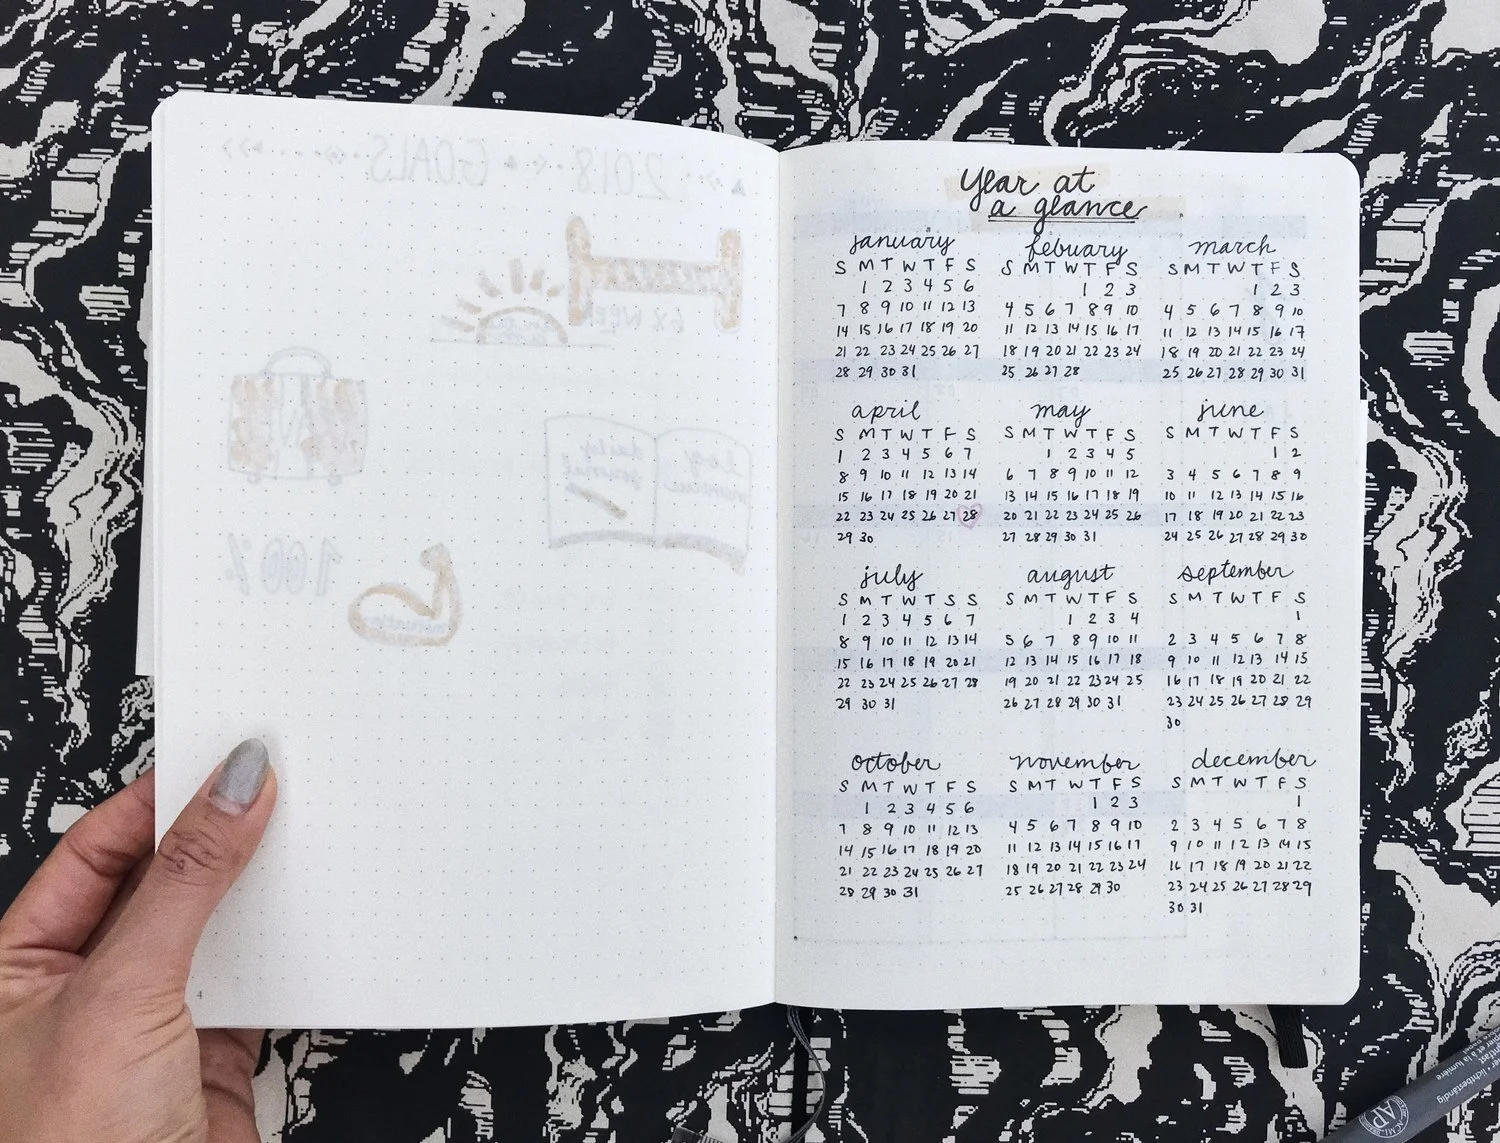 2018 GOALS
6x WEEK
log
daily
journal
100%
4
Year at
a glance
january febuary march
S M T W T F S S M T W T F S S M T W T F S
1 2 3 4 5 6 1 2 3 1 2 3
7 8 9 10 11 12 13 4 5 6 7 8 9 10 4 5 6 7 8 9 10
14 15 16 17 18 19 20 11 12 13 14 15 16 17 11 12 13 14 15 16 17
21 22 23 24 25 26 27 18 19 20 21 22 23 24 18 19 20 21 22 23 24
28 29 30 31 25 26 27 28 25 26 27 28 29 30 31
april may june
S M T W T F S S M T W T F S S M T W T F S
1 2 3 4 5 6 7 1 2 3 4 5 1 2
8 9 10 11 12 13 14 6 7 8 9 10 11 12 3 4 5 6 7 8 9
15 16 17 18 19 20 21 13 14 15 16 17 18 19 10 11 12 13 14 15 16
22 23 24 25 26 27 28 20 21 22 23 24 25 26 17 18 19 20 21 22 23
29 30 27 28 29 30 31 24 25 26 27 28 29 30
july august september
S M T W T S S S M T W T F S S M T W T F S
1 2 3 4 5 6 7 1 2 3 4 1
8 9 10 11 12 13 14 5 6 7 8 9 10 11 2 3 4 5 6 7 8
15 16 17 18 19 20 21 12 13 14 15 16 17 18 9 10 11 12 13 14 15
22 23 24 25 26 27 28 19 20 21 22 23 24 25 16 17 18 19 20 21 22
29 30 31 26 27 28 29 30 31 23 24 25 26 27 28 29
30
october november december
S M T W T F S S M T W T F S S M T W T F S
1 2 3 4 5 6 1 2 3 1
7 8 9 10 11 12 13 4 5 6 7 8 9 10 2 3 4 5 6 7 8
14 15 16 17 18 19 20 11 12 13 14 15 16 17 9 10 11 12 13 14 15
21 22 23 24 25 26 27 18 19 20 21 22 23 24 16 17 18 19 20 21 22
28 29 30 31 25 26 27 28 29 30 23 24 25 26 27 28 29
30 31
5
lichtbeständig
papier et à la lumière
AP